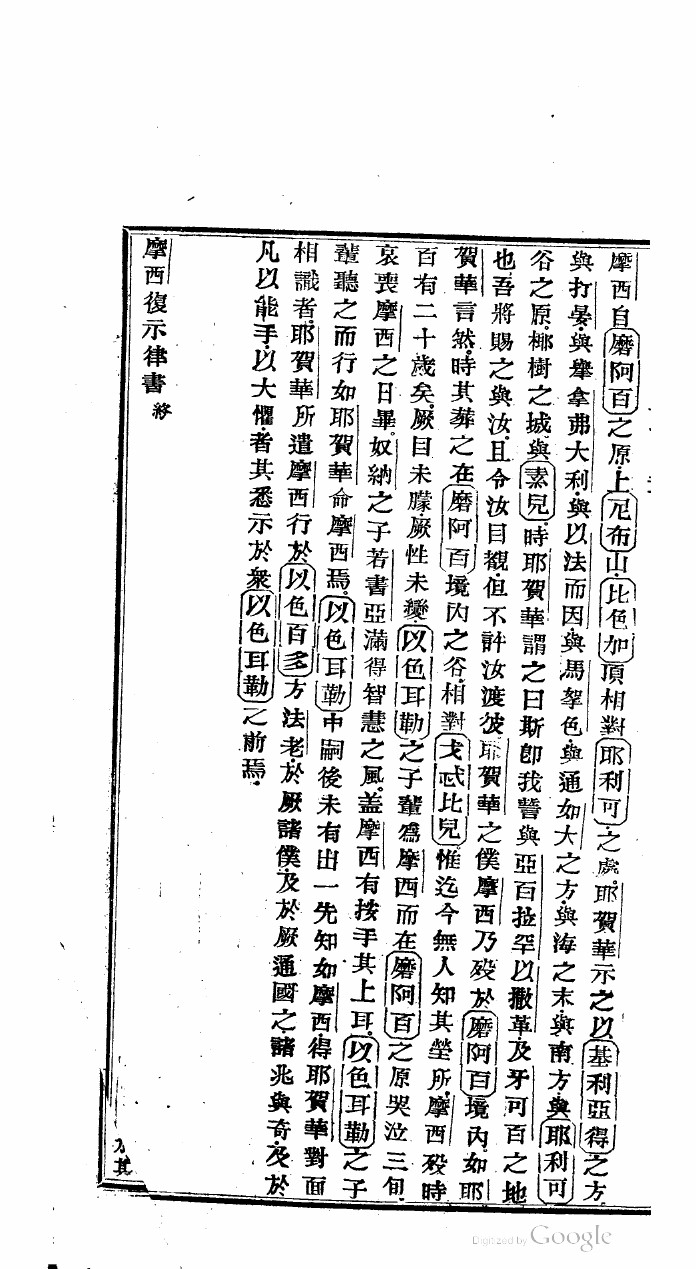 摩西自磨阿百之原上尼布山比色加頂相對耶利可之處耶賀華示之以基利亞得之方
與打晏與拿弗大利與以法而因與馬拏色與通如大之方與海之末與南方與耶利可
谷之原椰樹之城與素兒時耶賀華謂之曰斯卽我誓與亞百拉罕以撒革及牙可百之地
也吾將賜之與汝且令汝目覩但不許汝渡彼耶賀華之僕摩西乃歿於磨阿百境內如耶
賀華言然時其葬之在磨阿百境內之谷相對戈忒比兒惟迄今無人知其塋所摩西歿時
百有二十歲矣厥目未朦厥性未變以色耳勒之子輩爲摩西而在磨阿百之原哭泣三旬
哀喪摩西之日畢奴納之子若書亞滿得智慧之風蓋摩西有按手其上耳以色耳勒之子
輩聽之而行如耶賀華命摩西焉以色耳勒中嗣後未有出一先知如摩西得耶賀華對面
相識者耶賀華所遣摩西行於以色百多方法老於厥諸僕及於厥通國之諸兆與奇及於
凡以能手以大懼者其悉示於衆以色耳勒之前焉
摩西復示律書 終
Digitized by Google